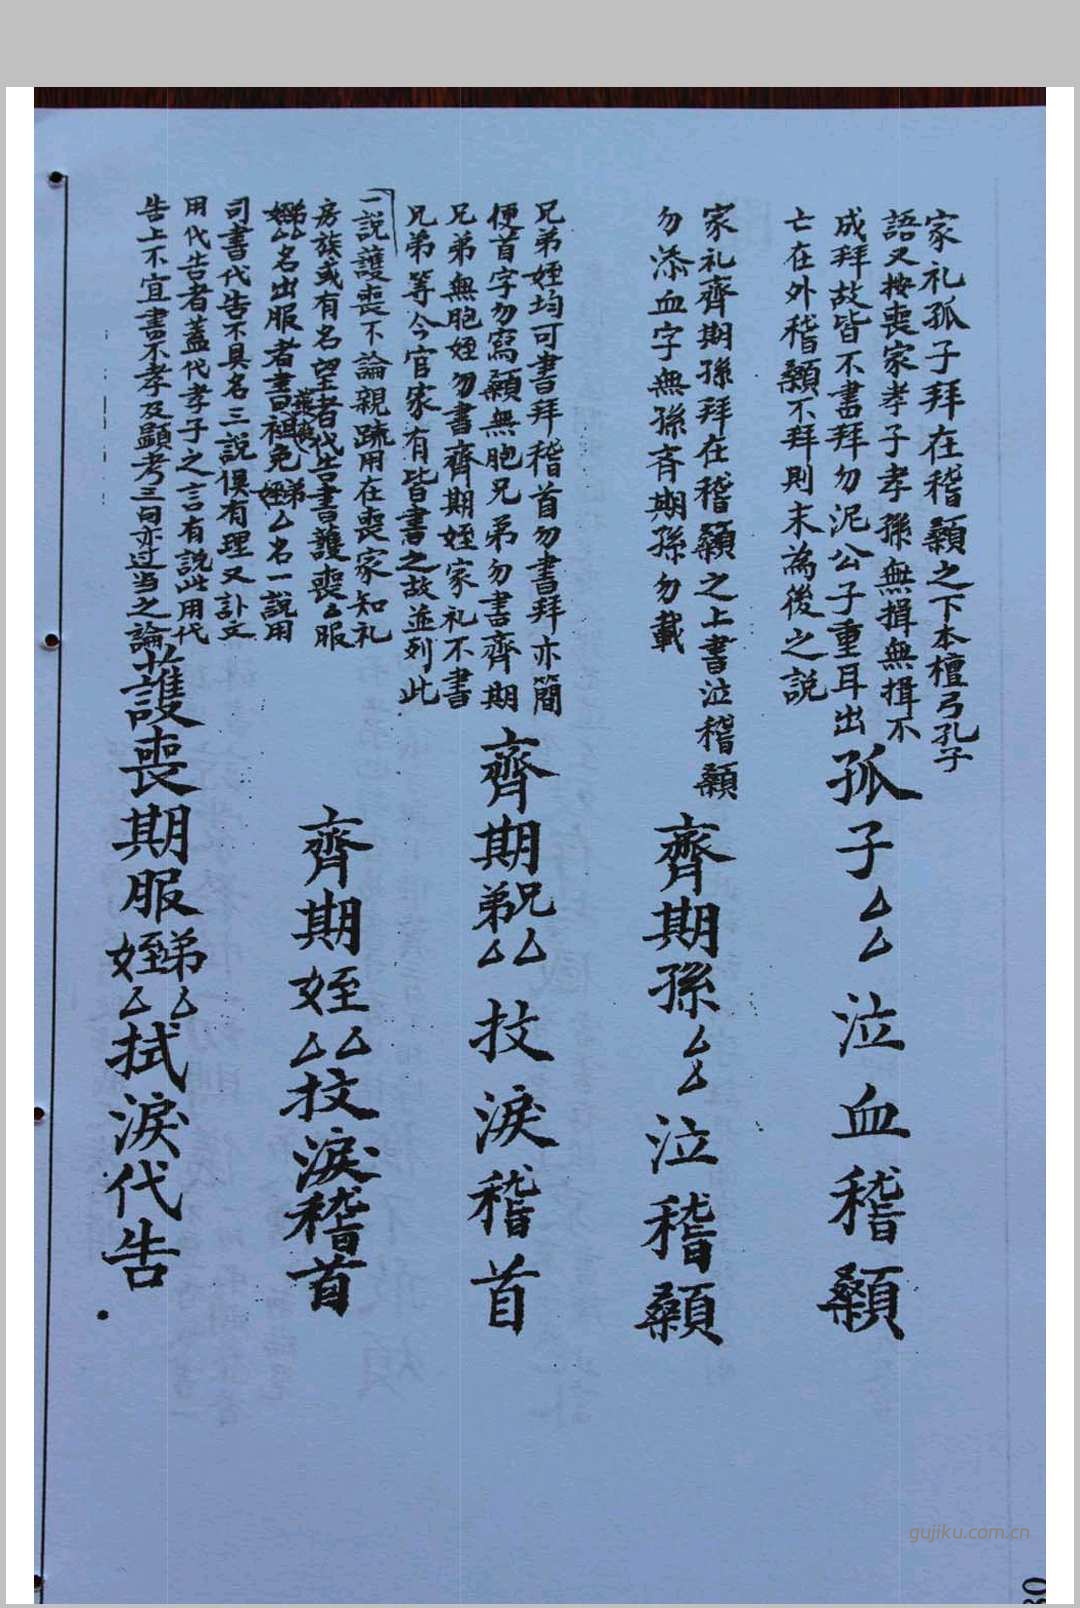 家礼孤子拜在稽顙之下本檀弓孔子
語又按喪家孝子孝孫無揖無揖不
成拜故皆不書拜勿泥公子重耳出
亡在外稽顙不拜則未為後之説
孤子厶厶泣血稽顙
家礼齊期孫拜在稽顙之上書泣稽顙
勿添血字無孫斉期孫勿載
齊期孫厶厶泣稽顙
兄弟姪均可書拜稽首勿書拜亦簡
便首字勿寫顙無胞兄弟勿書齊期
兄弟無胞姪勿書齊期姪家礼不書
兄弟等今官家有皆書之故並列此
齊期兄弟厶厶抆淚稽首
齊期姪厶厶抆淚稽首
一説護喪不論親疏用在喪家知礼
房族或有名望者代告書護喪厶服
弟姪厶名出服者書護喪袒免弟姪厶名一説用
司書代告不具名三説俱有理又訃文
用代告者蓋代孝子之言有説此用代
告上不宜書不孝及顕考三句亦过当之論
護喪期服弟姪厶厶拭淚代告
gujiku.com.cn